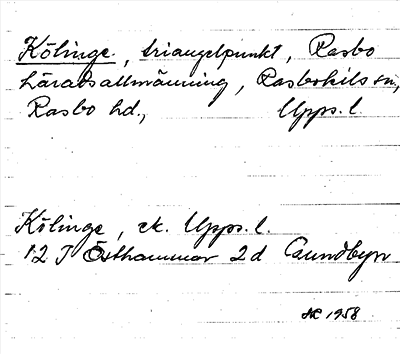 Kölinge, triangelpunkt, Rasbo
häradsallmänning, Rasbokils sn,
Rasbo hd., Upps. l.
Kölinge, ek. Upps. l.
12 I Östhammar 2d Gundbyn
1958